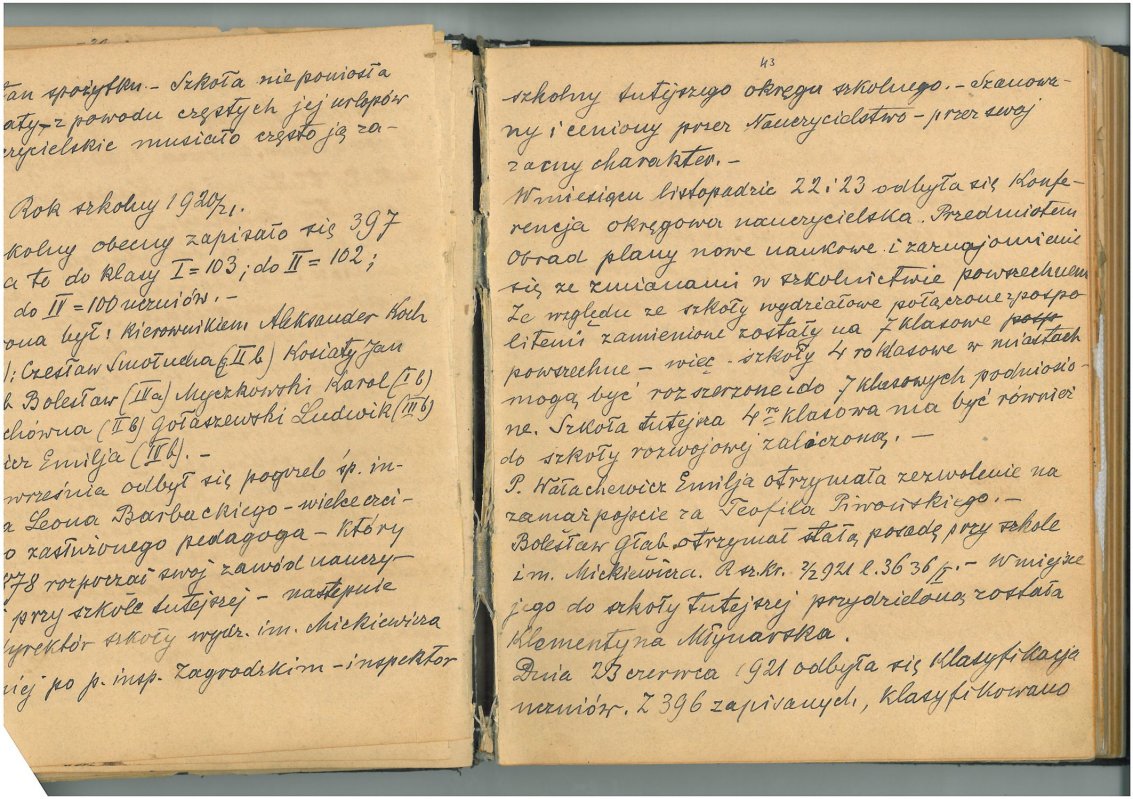 tan spożytku. – Szkoła nie poniosła
aty – z powodu częstych jej urlopów
czycielskie musiało często ją za-
Rok szkolny 1920/21.
kolny obecny zapisało się 397
a to do klasy I = 103; do II = 102;
do IV = 100 uczniów. –
ona był: kierownikiem Aleksander Koch
): Czesław Smołucha (IIb) Kosiaty Jan
b Bolesław (IIIa) Myczkowski Karol (Ib)
chówna (IIb) Gołaszewski Ludwik (IIIb)
icz Emilja (IVb). –
września odbył się pogrzeb śp. in-
a Leona Barbackiego – wielce czci-
o zasłużonego pedagoga – który
878 rozpoczął swój zawód nauczy-
przy szkole tutejszej – następnie
dyrektór szkoły wydz. im. Mickiewicza
niej po p. insp. Zagrodzkim – inspektor
43
szkolny tutejszego okręgu szkolnego. – Szanowa-
ny i ceniony przez Nauczycielstwo – przez swój
zacny charakter. –
W miesiącu listopadzie 22 i 23 odbyła się Konfe-
rencja okręgowa nauczycielska. Przedmiotem
obrad plany nowe naukowe i zaznajomienie
się ze zmianami w szkolnictwie powszechnem
Ze względu ze szkoły wydziałowe połączone z pospo
litemi zamienione zostały na 7 klasowe posp
powszechne – więc szkoły 4 roklasowe w miastach
mogą być rozszerzone i do 7 klasowych podniesio-
ne. Szkoła tutejsza 4ro klasowa ma być również
do szkoły rozwojowej zaliczoną. –
P. Wałachewicz Emilja otrzymała zezwolenie na
zamążpójście za Teofila Piwońskiego. –
Bolesław Głąb otrzymał stałą posadę przy szkole
im. Mickiewicza. R sz. kr. 2/2 921 l. 3636/I. – W miejsce
jego do szkoły tutejszej przydzieloną została
Klementyna Młynarska.
Dnia 23 czerwca 1921 odbyła się Klasyfikacja
uczniów. Z 396 zapisanych, klasyfikowano